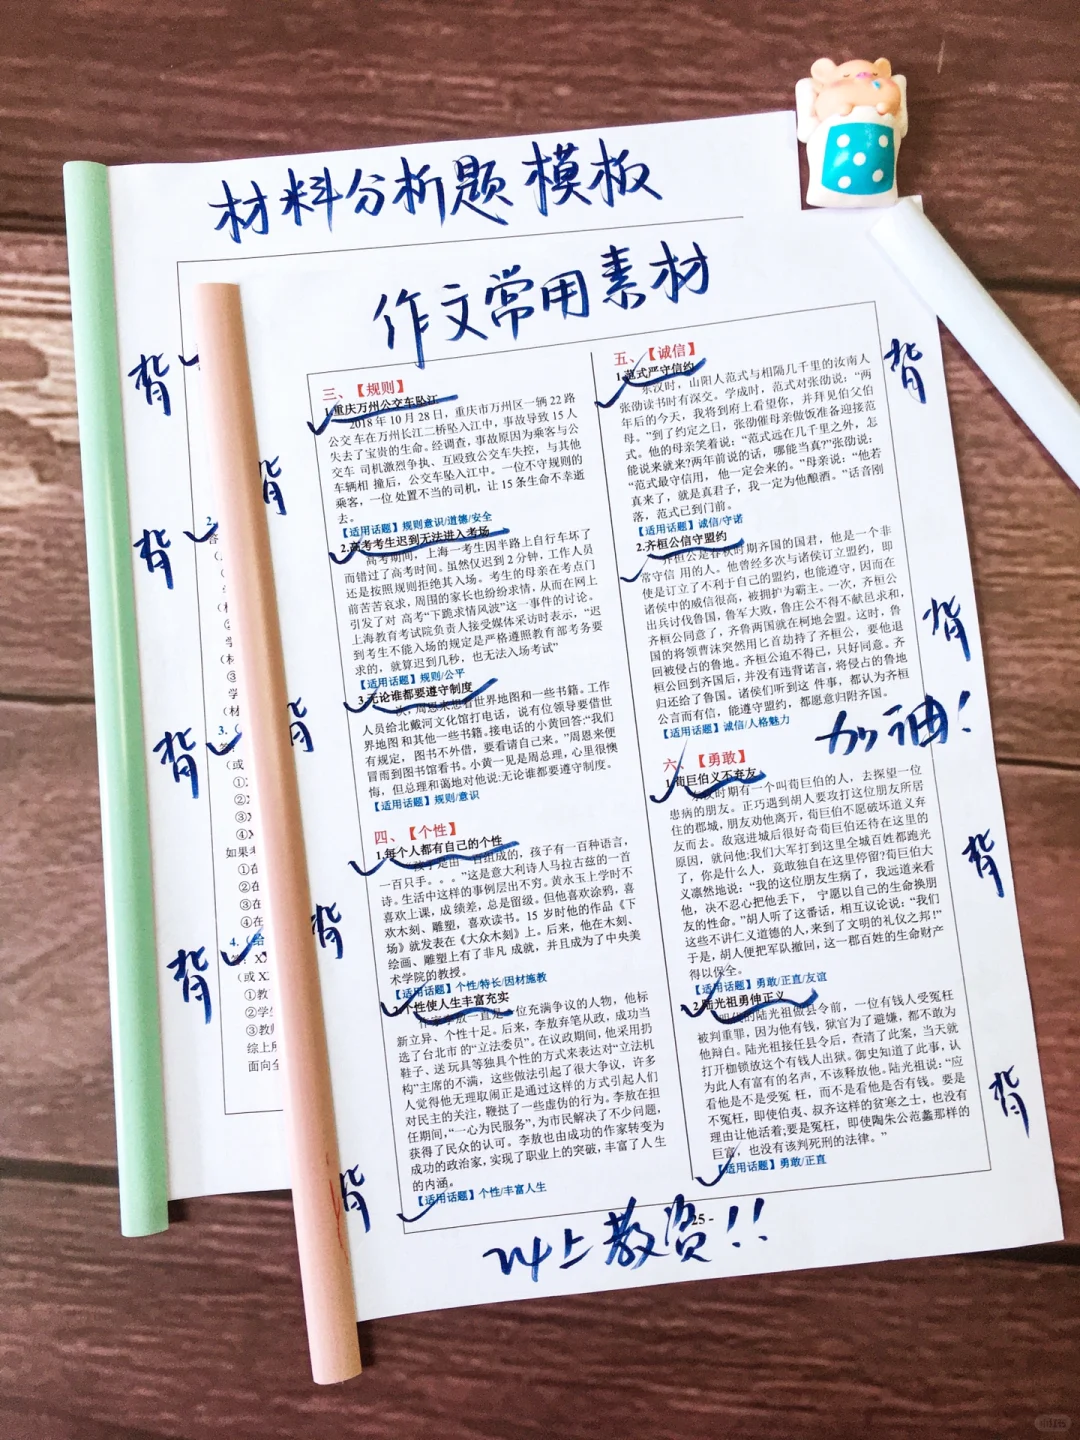 材料分析题模板
作文常用素材
三、【规则】
1.重庆万州公交车坠江
2018年10月28日，重庆市万州区一辆22路
公交车在万州长江二桥坠入江中，事故导致15人
失去了宝贵的生命。经调查，事故原因为乘客与公
交车 司机激烈争执、互殴致公交车失控，与其他
车辆相 撞后，公交车坠入江中。一位不守规则的
乘客，一位 处置不当的司机，让15条生命不幸逝
去。
【适用话题】规则意识/道德/安全
2.高考考生迟到无法进入考场
高考期间，上海一考生因半路上自行车坏了
而错过了高考时间。虽然仅迟到2分钟，工作人员
还是按照规则拒绝其入场。考生的母亲在考点门
前苦苦哀求，周围的家长也纷纷求情，从而在网上
引发了对 高考“下跪求情风波”这一事件的讨论。
上海教育考试院负责人接受媒体采访时表示，“迟
到考生不能入场的规定是严格遵照教育部考务要
求的，就算迟到几秒，也无法入场考试”
【适用话题】规则/公平
3.无论谁都要遵守制度
次，周恩来想看世界地图和一些书籍。工作
人员给北戴河文化馆打电话，说有位领导要借世
界地图 和其他一些书籍。接电话的小黄回答:“我们
有规定， 图书不外借，要看请自己来。”周恩来便
冒雨到图书馆看书。小黄一见是周总理，心里很懊
悔，但总理和蔼地对他说:无论谁都要遵守制度。
【适用话题】规则/意识
四、【个性】
1.每个人都有自己的个性
“孩子是由一百组成的，孩子有一百种语言，
一百只手。。。”这是意大利诗人马拉古兹的一首
诗。生活中这样的事例层出不穷。黄永玉上学时不
喜欢上课，成 绩差，总是留级。但他喜欢涂鸦，喜
欢木刻、雕塑，喜欢读书。15 岁时他的作品《下
场》就发表在《大众木刻》上。后来，他在木刻、
绘画、雕塑上有了非凡 成就，并且成为了中央美
术学院的教授。
【适用话题】个性/特长/因材施教
2.个性使人生丰富充实
作家李敖一直是一位充满争议的人物，他标
新立异、个性十足。后来，李敖弃笔从政，成功当
选了台北市 的“立法委员”，在议政期间，他采用扔
鞋子、送 玩具等独具个性的方式来表达对“立法机
构”主席的不满，这些做法引起了很大争议，许多
人觉得他无理取闹正是通过这样的方式引起人们
对民主的关注，鞭挞了一些虚伪的行为。李敖在担
任期间，“一心为民服务”，为市民解决了不少问题，
获得了民众的认可。李敖也由成功的作家转变为
成功的政治家，实现了职业上的突破，丰富了人生
的内涵。
【适用话题】个性/丰富人生
五、【诚信】
1.范式严守信约
东汉时，山阳人范式与相隔几千里的汝南人
张劭读书时有深交。学成时，范式对张劭说：“两
年后的今天，我将到府上看望你，并拜见伯父伯
母。”到了约定之日，张劭催母亲做饭准备迎接范
式。他的母亲笑着说：“范式远在几千里之外，怎
能说来就来?两年前说的话，哪能当真?”张劭说：
“范式最守信用，他一定会来的。”母亲说：“他若
真来了，就是真君子，我一定为他酿酒。”话音刚
落，范式已到门前。
【适用话题】诚信/守诺
2.齐桓公信守盟约
齐桓公是春秋时期齐国的国君，他是一个非
常守信 用的人。他曾经多次与诸侯订立盟约，即
使是订立了不利于自己的盟约，也能遵守，因而在
诸侯中的威信很高，被拥护为霸主。一次，齐桓公
出兵讨伐鲁国，鲁军大败，鲁庄公不得不献邑求和，
齐桓公同意了，齐鲁两国就在柯地会盟。这时，鲁
国的将领曹沫突然用匕首劫持了齐桓公，要他退
回被侵占的鲁地。齐桓公迫不得已，只好同意。齐
桓公回到齐国后，并没有违背诺言，将侵占的鲁地
归还给了鲁国。诸侯们听到这 件事，都认为齐桓
公言而有信，能遵守盟约，都愿意归附齐国。
【适用话题】诚信/人格魅力
六、【勇敢】
1.荀巨伯义不弃友
东汉时期有一个叫荀巨伯的人，去探望一位
患病的朋友。正巧遇到胡人要攻打这位朋友所居
住的郡城，朋友劝他离开，荀巨伯不愿破坏道义弃
友而去。敌寇进城后很好奇荀巨伯还待在这里的
原因，就问他:我们大军打到这里全城百姓都跑光
了，你是什么人，竟敢独自在这里停留?荀巨伯大
义凛然地说：“我的这位朋友生病了，我远道来看
他，决不忍心把他丢下， 宁愿以自己的生命换朋
友的性命。”胡人听了这番话，相互议论说：“我们
这些不讲仁义道德的人，来到了文明的礼仪之邦!”
于是，胡人便把军队撤回，这一郡百姓的生命财产
得以保全。
【适用话题】勇敢/正直/友谊
2.陆光祖勇伸正义
明代的陆光祖做县令前，一位有钱人受冤枉
被判重罪，因为他有钱，狱官为了避嫌，都不敢为
他辩白。陆光祖接任县令后，查清了此案，当天就
打开枷锁放这个有钱人出狱。御史知道了此事，认
为此人有富有的名声，不该释放他。陆光祖说：“应
看他是不是受冤 枉，而不是看他是否有钱。要是
不冤枉，即使伯夷、叔齐这样的贫寒之士，也没有
理由让他活着;要是冤枉，即使陶朱公范蠡那样的
巨富，也没有该判死刑的法律。”
【适用话题】勇敢/正直
25 -
背
背
背
背
背
背
背
背
背
背
背
背
加油！
冲上教资！！